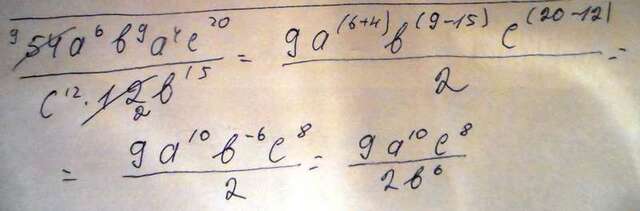 ⁹5̶4̶a⁶b⁹a⁴c²⁰ / c¹²·1̶2̶₂b¹⁵ = 9a⁽⁶⁺⁴⁾b⁽⁹⁻¹⁵⁾c⁽²⁰⁻¹²⁾ / 2 =
= 9a¹⁰b⁻⁶c⁸ / 2 = 9a¹⁰c⁸ / 2b⁶